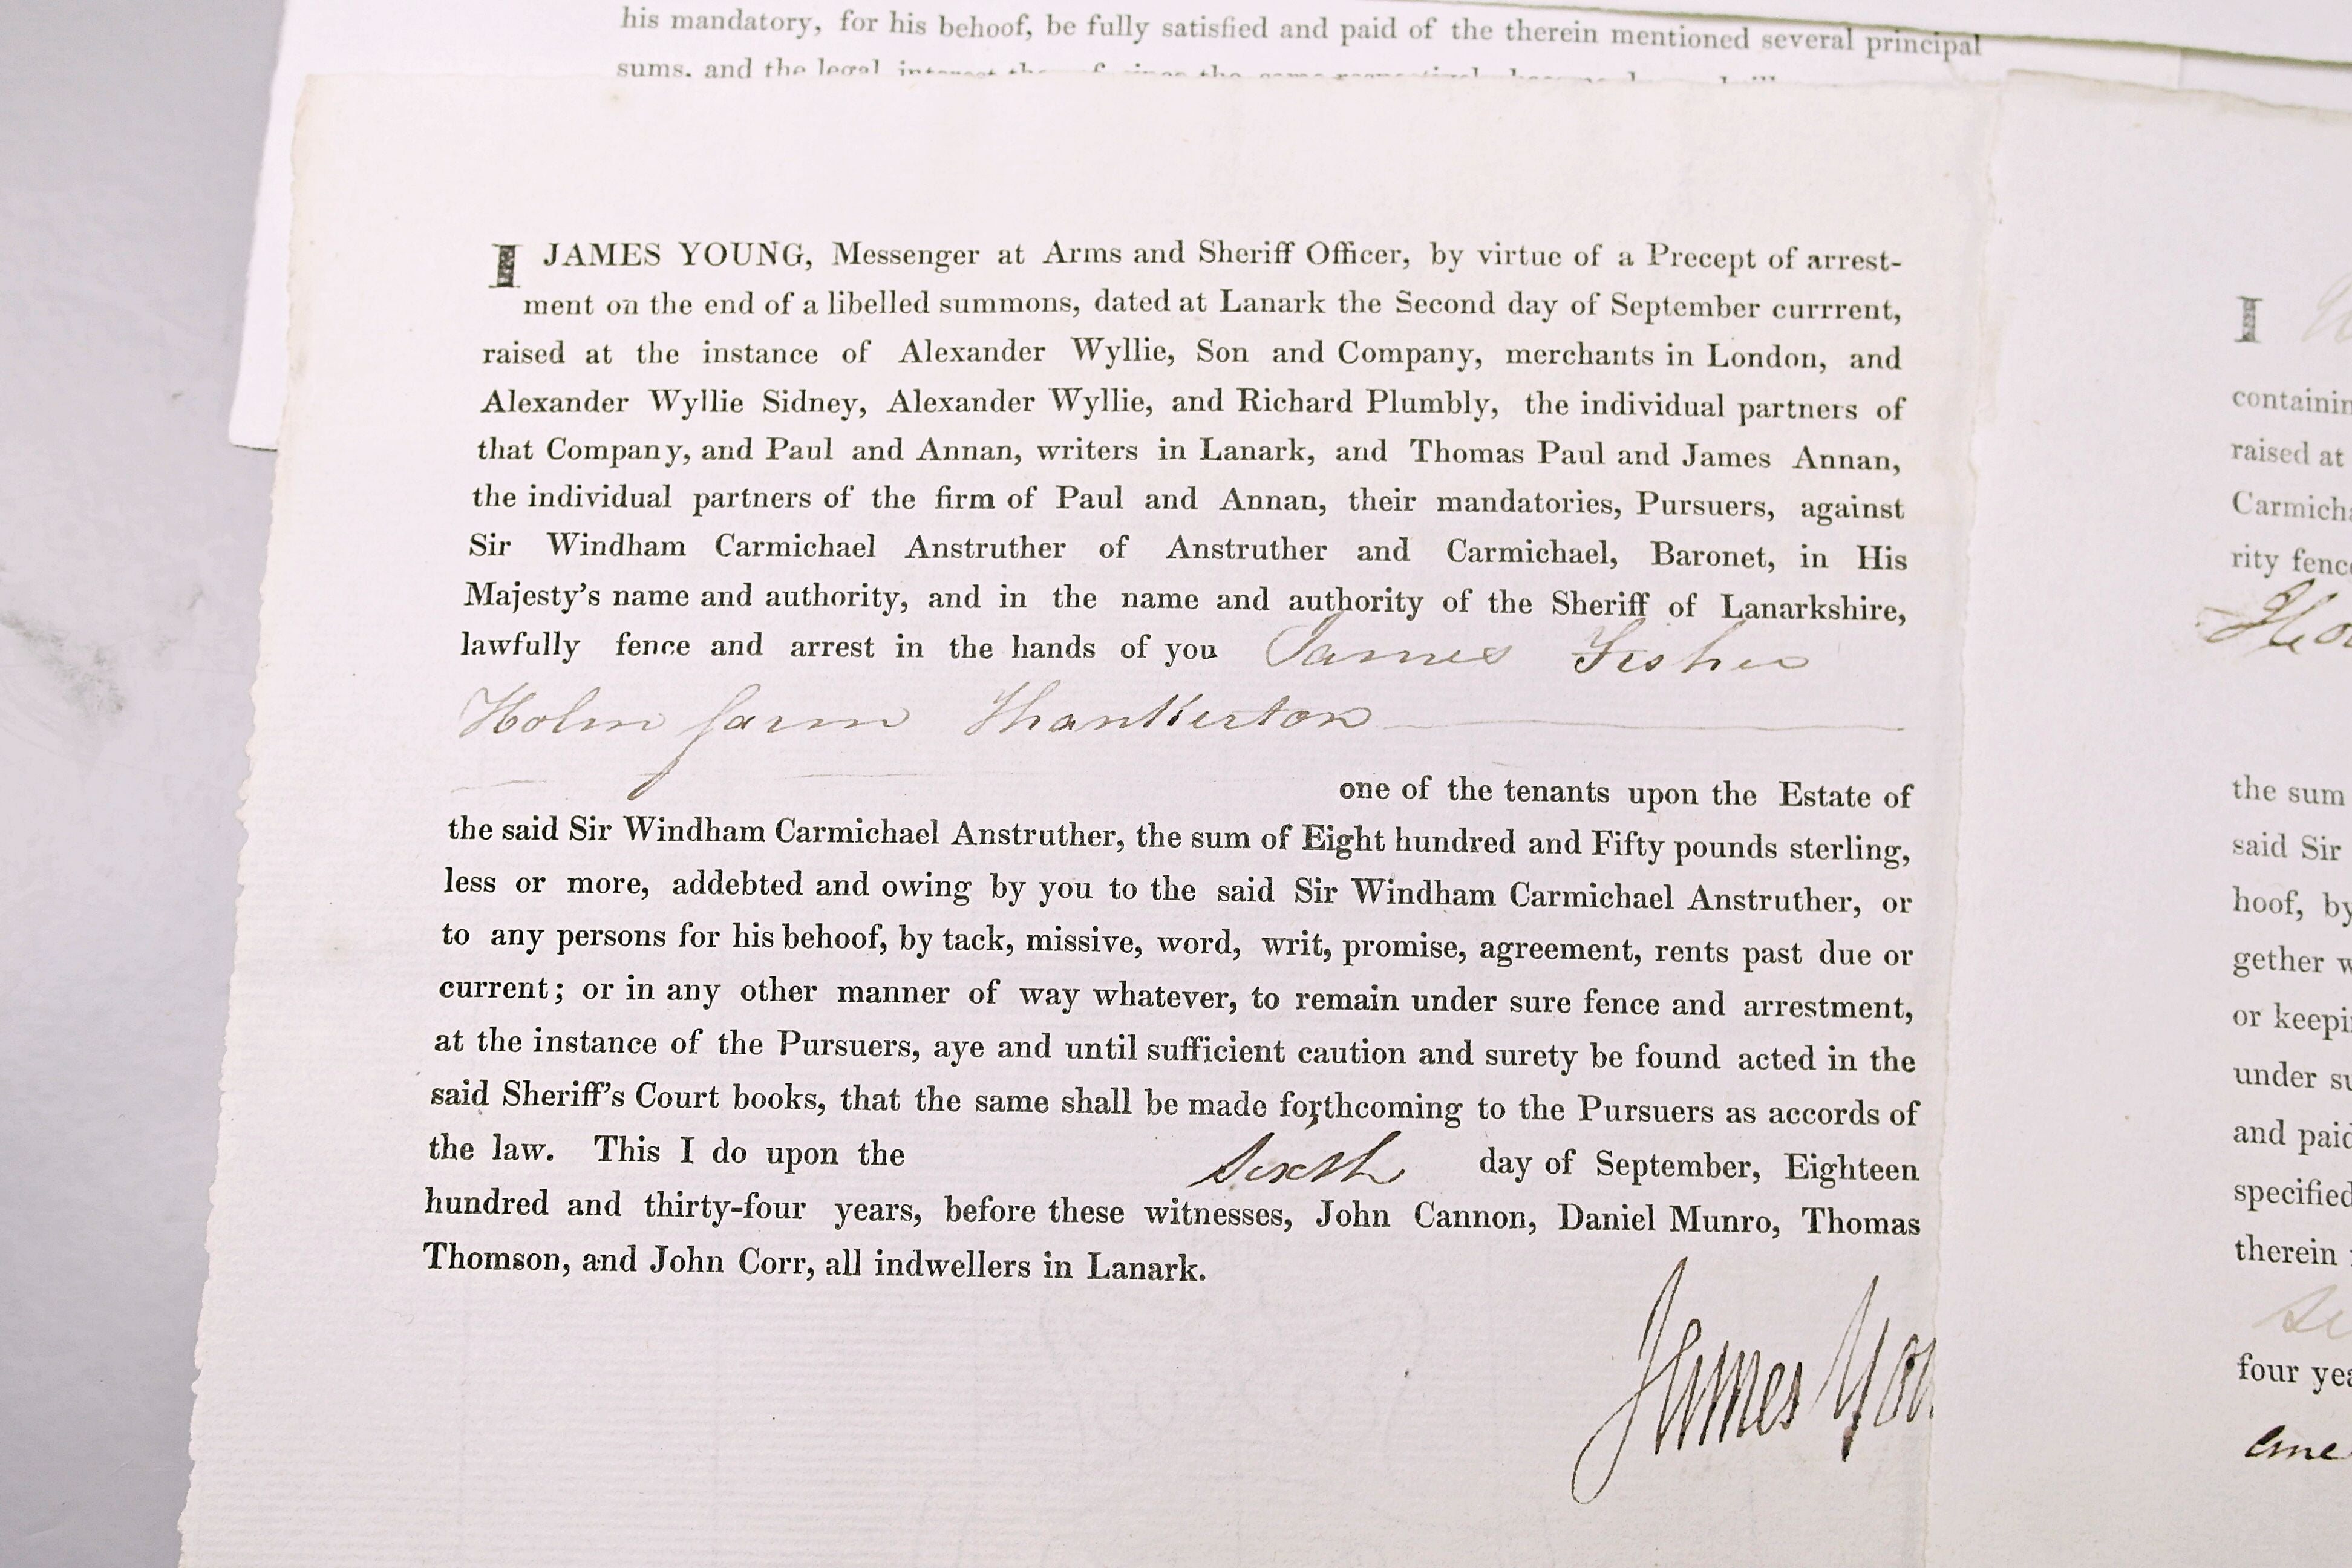 his mandatory, for his behoof, be fully satisfied and paid of the therein mentioned several principal
sums, and the legal interest
I JAMES YOUNG, Messenger at Arms and Sheriff Officer, by virtue of a Precept of arrest-
ment on the end of a libelled summons, dated at Lanark the Second day of September currrent,
raised at the instance of Alexander Wyllie, Son and Company, merchants in London, and
Alexander Wyllie Sidney, Alexander Wyllie, and Richard Plumbly, the individual partners of
that Company, and Paul and Annan, writers in Lanark, and Thomas Paul and James Annan,
the individual partners of the firm of Paul and Annan, their mandatories, Pursuers, against
Sir Windham Carmichael Anstruther of Anstruther and Carmichael, Baronet, in His
Majesty's name and authority, and in the name and authority of the Sheriff of Lanarkshire,
lawfully fence and arrest in the hands of you James Fisher
Holm farm Thankerton
one of the tenants upon the Estate of
the said Sir Windham Carmichael Anstruther, the sum of Eight hundred and Fifty pounds sterling,
less or more, addebted and owing by you to the said Sir Windham Carmichael Anstruther, or
to any persons for his behoof, by tack, missive, word, writ, promise, agreement, rents past due or
current; or in any other manner of way whatever, to remain under sure fence and arrestment,
at the instance of the Pursuers, aye and until sufficient caution and surety be found acted in the
said Sheriff's Court books, that the same shall be made forthcoming to the Pursuers as accords of
the law. This I do upon the sixth day of September, Eighteen
hundred and thirty-four years, before these witnesses, John Cannon, Daniel Munro, Thomas
Thomson, and John Corr, all indwellers in Lanark.
James You
I
containin
raised at
Carmicha
rity fence
the sum
said Sir
hoof, by
gether w
or keepi
under su
and paid
specified
therein
four yea